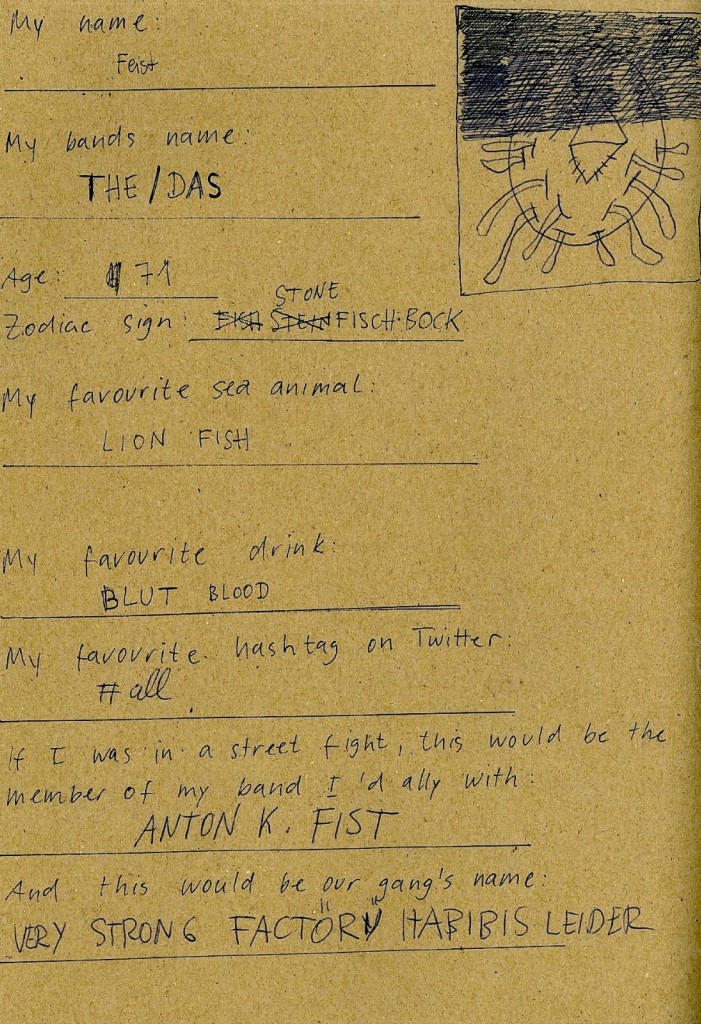 My name:
Feist
My bands name:
THE/DAS
Age: 71
STONE
Zodiac sign: FISH STEIN FISCH-BOCK
My favourite sea animal:
LION FISH
My favourite drink:
BLUT BLOOD
My favourite hashtag on Twitter:
#all
If I was in a street fight, this would be the
member of my band I'd ally with:
ANTON K. FIST
And this would be our gang's name:
VERY STRONG FACTÖRŸ HABIBIS LEIDER